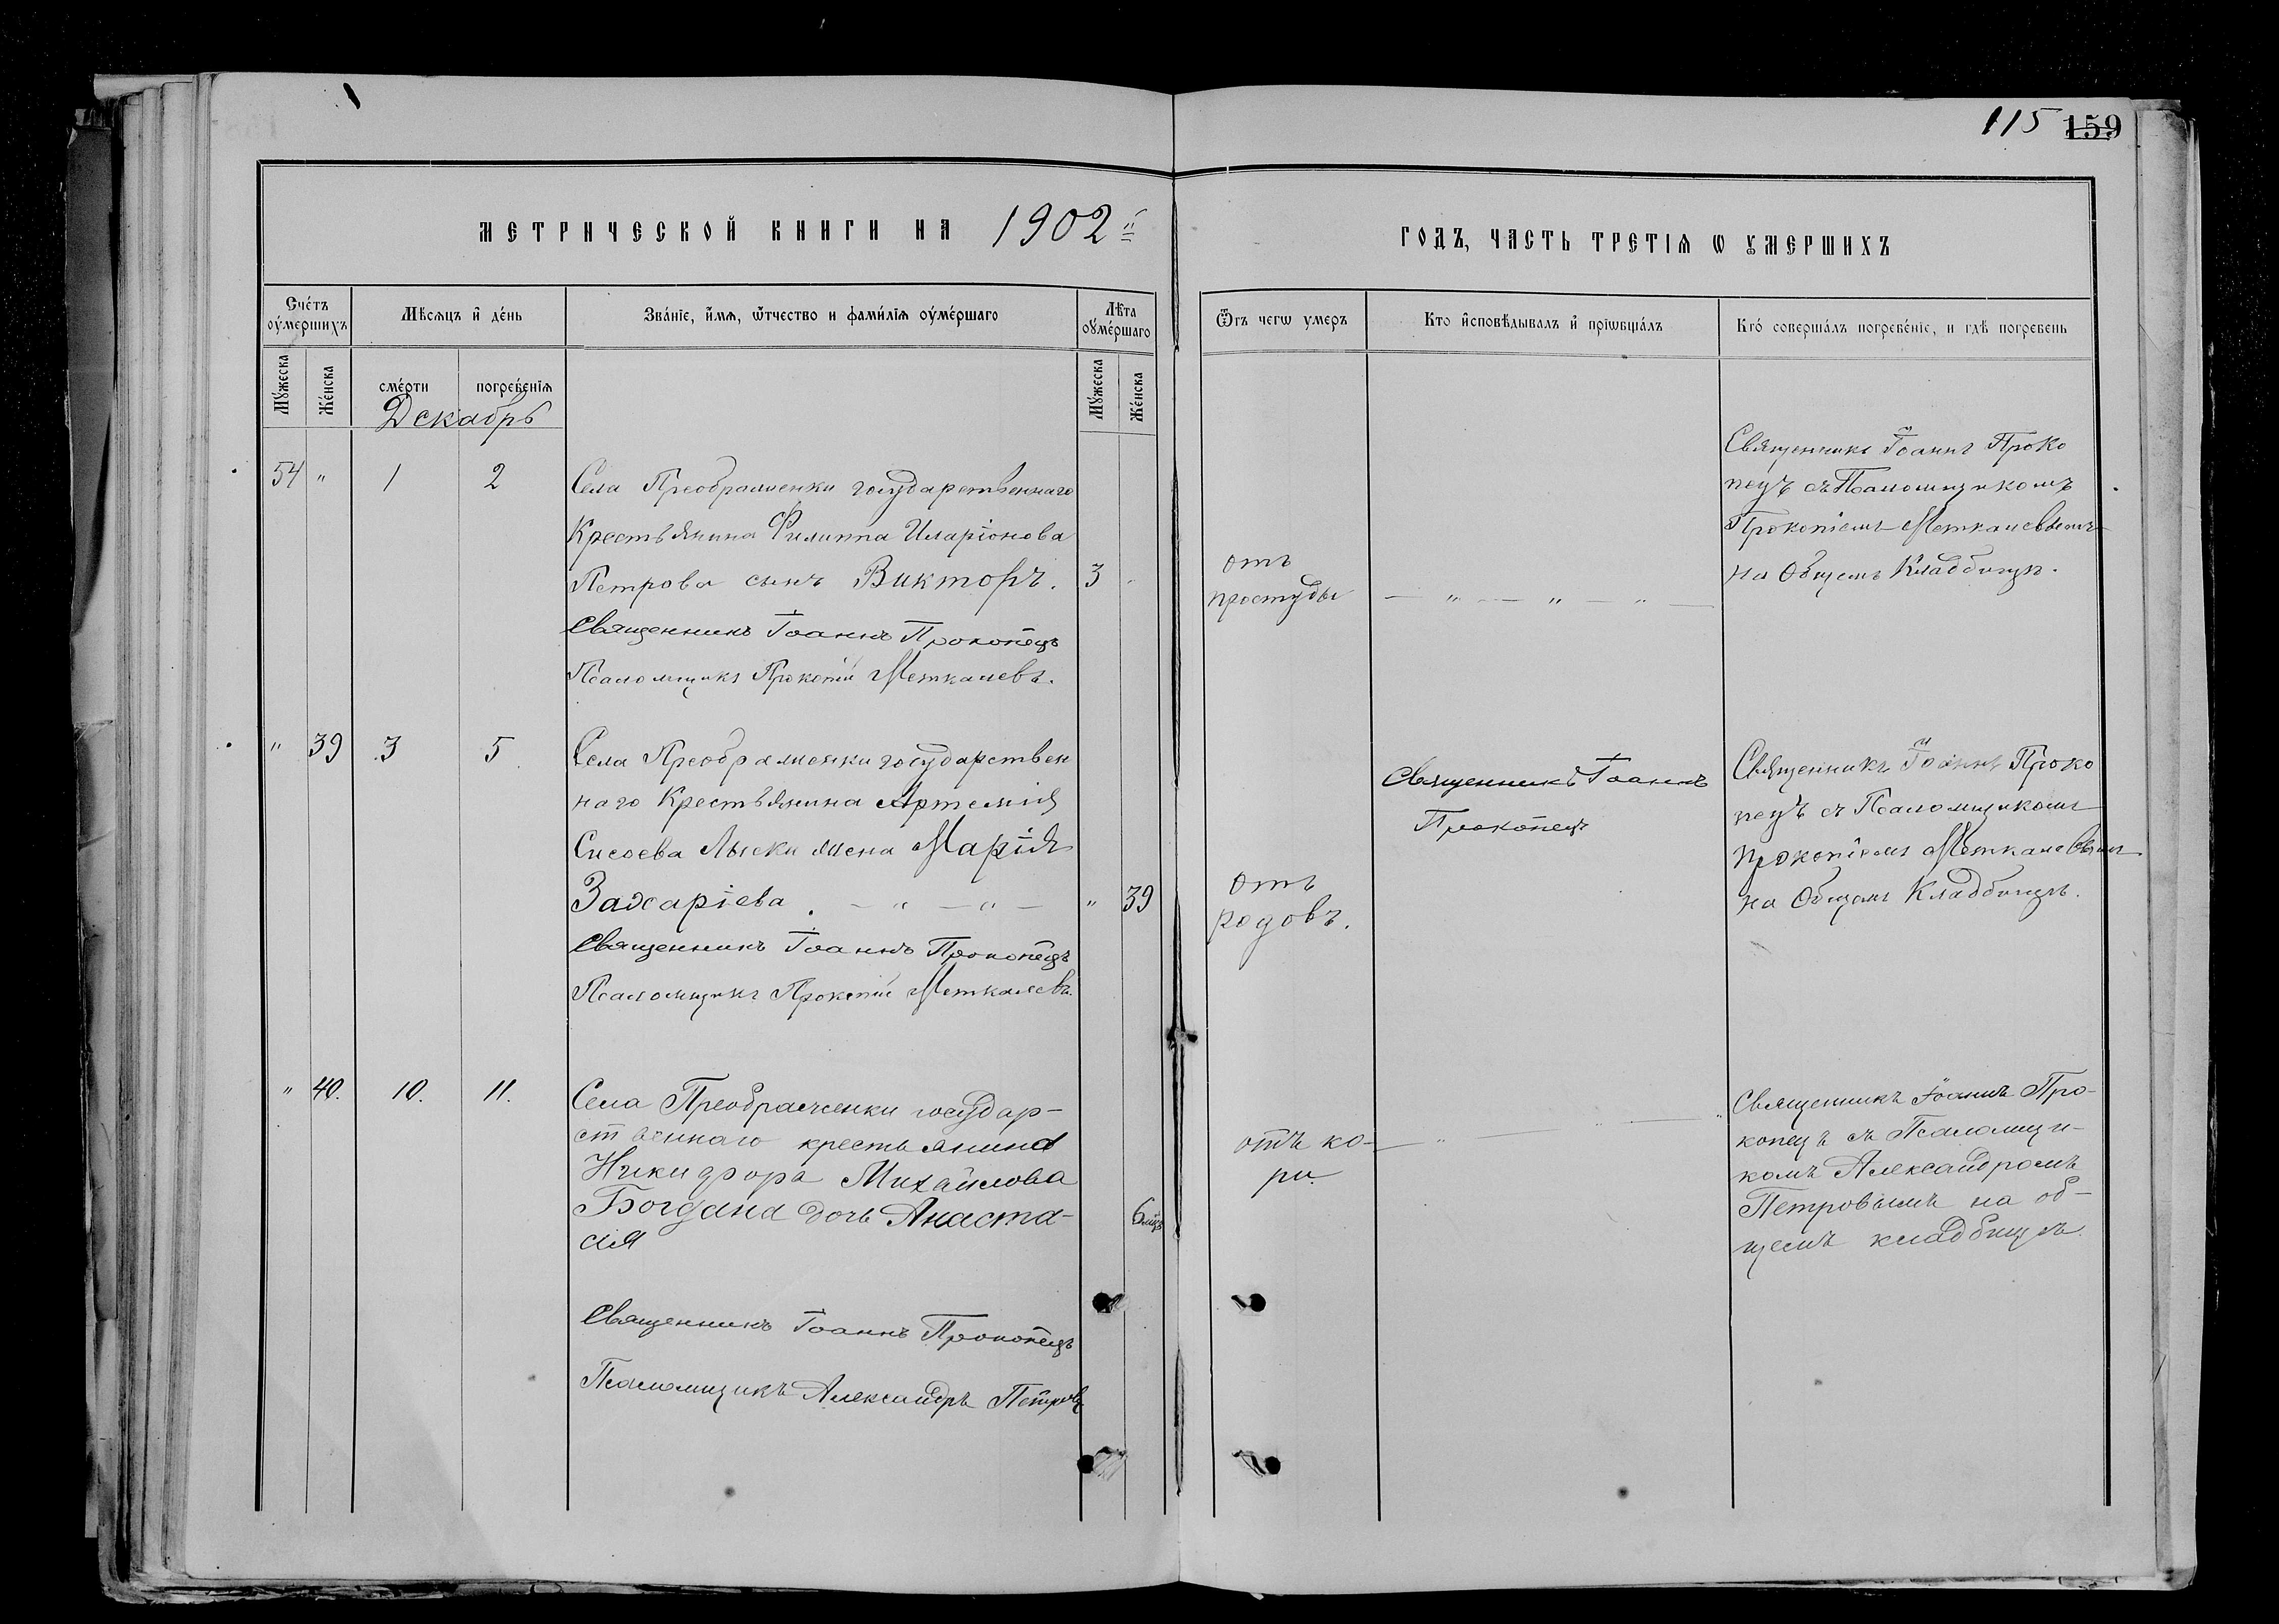 115 159
МЕТРИЧЕСКОЙ КНИГИ НА 1902й
ГОДЪ, ЧАСТЬ ТРЕТІЯ Ѡ ꙊМЕРШИХЪ
Сче́тъ оу҆ме́ршихъ
Мѣ́сяцъ и҆ де́нь
Зва́ніе, и҆́мя, ѿ́чество и фами́лія оу҆ме́ршаго
Лѣ́та оу҆ме́ршаго
Ѿ чегѡ умеръ
Кто и҆сповѣ́дывалъ и҆ прїѡбща́лъ
Кто́ соверша́лъ погребе́ніе, и гдѣ̀ погребенъ
Мꙋ́жеска
Же́нска
сме́рти
погребе́нія
Мꙋ́жеска
Же́нска
Декабрь
54 " 1 2
Села Преображенки государственнаго
Крестьянина Филиппа Иларіонова
Петрова сынъ Викторъ. 3
Священникъ Іоаннъ Прокопецъ
Псаломщикъ Прокопій Меткалевъ.
отъ
простуды
— " — " — " —
Священникъ Іоаннъ Проко
пецъ съ Псаломщикомъ
Прокопіемъ Меткалевымъ
на Общемъ Кладбищѣ.
" 39 3 5
Села Преображенки государствен
наго Крестьянина Артемія
Сисоева Лыски жена Марія
Захаріева. — " — " — " 39
Священникъ Іоаннъ Прокопецъ
Псаломщикъ Прокопій Меткалевъ.
отъ
родовъ.
Священникъ Іоаннъ
Прокопецъ
Священникъ Іоаннъ Проко
пецъ съ Псаломщикомъ
Прокопіемъ Меткалевымъ
на Общемъ Кладбищѣ.
" 40. 10. 11.
Села Преображенки государ-
ственнаго крестьянина
Никифора Михайлова
Богдана дочь Анаста-
сія 6 мѣц
Священникъ Іоаннъ Прокопецъ
Псаломщикъ Александръ Петровъ
отъ ко-
ри.
— " — " — "
Священникъ Іоаннъ Про-
копецъ съ Псаломщи-
комъ Александромъ
Петровымъ на об-
щемъ кладбищѣ.